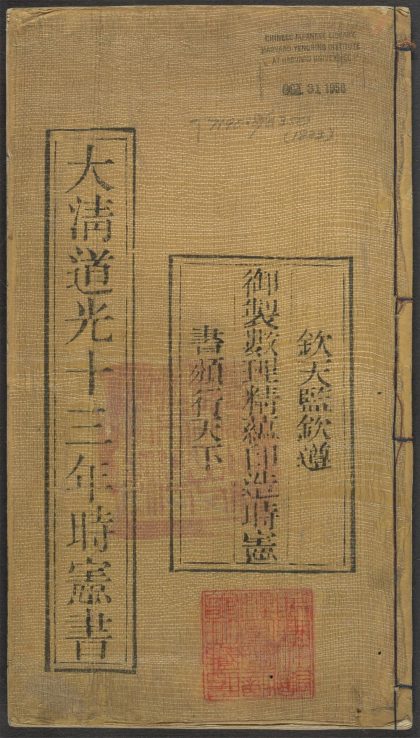 CHINESE-JAPANESE LIBRARY
HARVARD-YENCHING INSTITUTE
AT HARVARD UNIVERSITY
OCT 31 1956
(1833)
欽天監欽遵
御製數理精緼印造時憲
書頒行天下
大清道光十三年時憲書